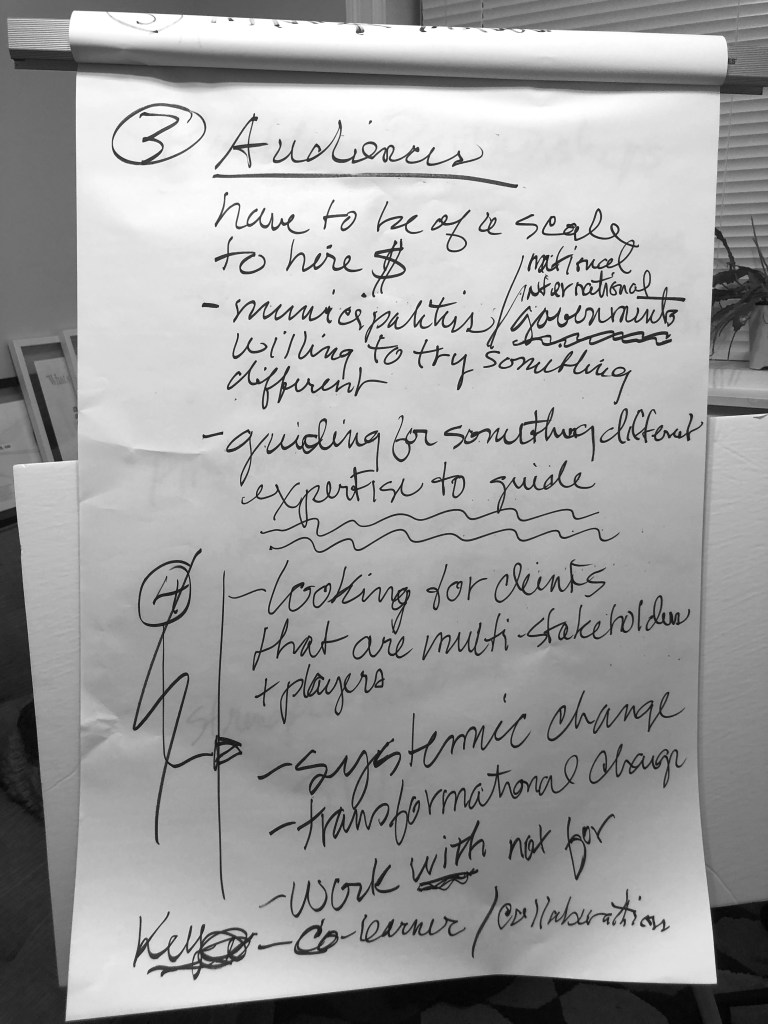 3 Audiences
have to be of a scale
to hire $
- municipalities / national
international
governments
willing to try something
different
- guiding for something different
expertise to guide
4 - looking for clients
that are multi-stakeholder
+ players
- systemic change
- transformational change
- work with not for
Key - co-learner / collaboration